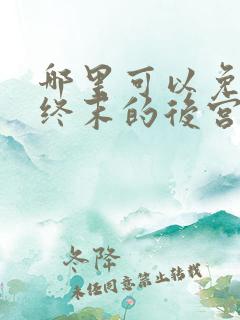 哪里可以免
终末的後宫
冬降
未经同意禁止转载